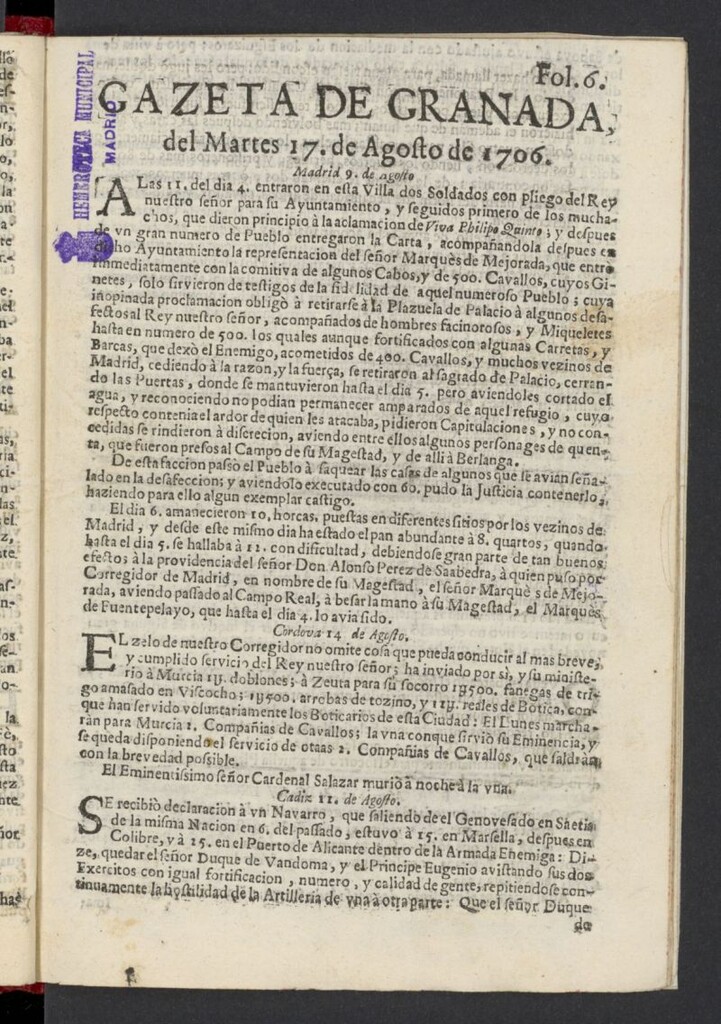 Fol.6.
GAZETA DE GRANADA,
del Martes 17. de Agoſto de 1706.
HEMEROTECA MUNICIPAL
MADRID
Madrid 9. de agoſto
A Las 11. del dia 4. entraron en eſta Villa dos Soldados con pliego del Rey
nueſtro ſeñor para ſu Ayuntamiento, y ſeguidos primero de los mucha-
chos, que dieron principio à la aclamacion de Viva Philipo Quinto; y deſpues
de vn gran numero de Pueblo entregaron la Carta, acompañandola deſpues en
dicho Ayuntamiento la repreſentacion del ſeñor Marquès de Mejorada, que entrò
immediatamente con la comitiva de algunos Cabos, y de 500. Cavallos, cuyos Gi-
netes, ſolo ſirvieron de teſtigos de la fidelidad de aquel numeroſo Pueblo; cuya
inopinada proclamacion obligò à retirarſe à la Plazuela de Palacio à algunos deſa-
fectos al Rey nueſtro ſeñor, acompañados de hombres facinoroſos, y Miqueletes
haſta en numero de 500. los quales aunque fortificados con algunas Carretas, y
Barcas, que dexò el Enemigo, acometidos de 400. Cavallos, y muchos vezinos de
Madrid, cediendo à la razon, y la fuerça, ſe retiraron al ſagrado de Palacio, cerran-
do las Puertas, donde ſe mantuvieron haſta el dia 5. pero aviendoles cortado el
agua, y reconociendo no podian permanecer amparados de aquel refugio, cuyo
reſpecto contenia el ardor de quien les atacaba, pidieron Capitulaciones, y no con-
cedidas ſe rindieron à diſcrecion, aviendo entre ellos algunos perſonages de quen-
ta, que fueron preſos al Campo de ſu Mageſtad, y de alli à Berlanga.
De eſta faccion paſsò el Pueblo à ſaquear las caſas de algunos que ſe avian ſeña-
lado en la deſafeccion; y aviendolo executado con 60. pudo la Juſticia contenerlo,
haziendo para ello algun exemplar caſtigo.
El dia 6. amanecieron 10, horcas, pueſtas en diferentes ſitios por los vezinos de
Madrid, y deſde eſte miſmo dia ha eſtado el pan abundante à 8. quartos, quando
haſta el dia 5. ſe hallaba à 11. con dificultad, debiendoſe gran parte de tan buenos
efectos à la providencia del ſeñor Don Alonſo Perez de Saabedra, à quien puſo por
Corregidor de Madrid, en nombre de ſu Mageſtad, el ſeñor Marquè s de Mejo-
rada, aviendo paſſado al Campo Real, à beſar la mano à ſu Mageſtad, el Marquès
de Fuentepelayo, que haſta el dia 4. lo avia ſido.
Cordova 14 de Agoſto.
EL zelo de nueſtro Corregidor no omite coſa que pueda conducir al mas breve,
y cumplido ſervicio del Rey nueſtro ſeñor; ha inviado por ſi, y ſu miniſte-
rio à Murcia 1y. doblones; à Zeuta para ſu ſocorro 1y500. fanegas de tri-
go amaſado en Viſcocho; 1y500. arrobas de tozino, y 12y. reales de Botica, con
que han ſervido voluntariamente los Boticarios de eſta Ciudad: El Lunes marcha-
ràn para Murcia 2. Compañias de Cavallos; la vna con que ſirviò ſu Eminencia, y
ſe queda diſponiendo el ſervicio de otaas 2. Compañias de Cavallos, que ſaldràn
con la brevedad poſsible.
El Eminentiſsimo ſeñor Cardenal Salazar muriò à noche à la vna.
Cadiz 11. de Agoſto.
SE recibiò declaracion à vn Navarro, que ſaliendo de el Genoveſado en Saetia
de la miſma Nacion en 6. del paſſado, eſtuvo à 15. en Marſella, deſpues en
Colibre, y à 25. en el Puerto de Alicante dentro de la Armada Enemiga: Di-
ze, quedar el ſeñor Duque de Vandoma, y el Principe Eugenio aviſtando ſus dos
Exercitos con igual fortificacion, numero, y calidad de gente, repitiendoſe con-
tinuamente la hoſtilidad de la Artilleria de vna à otra parte: Que el ſeñor Duque
de